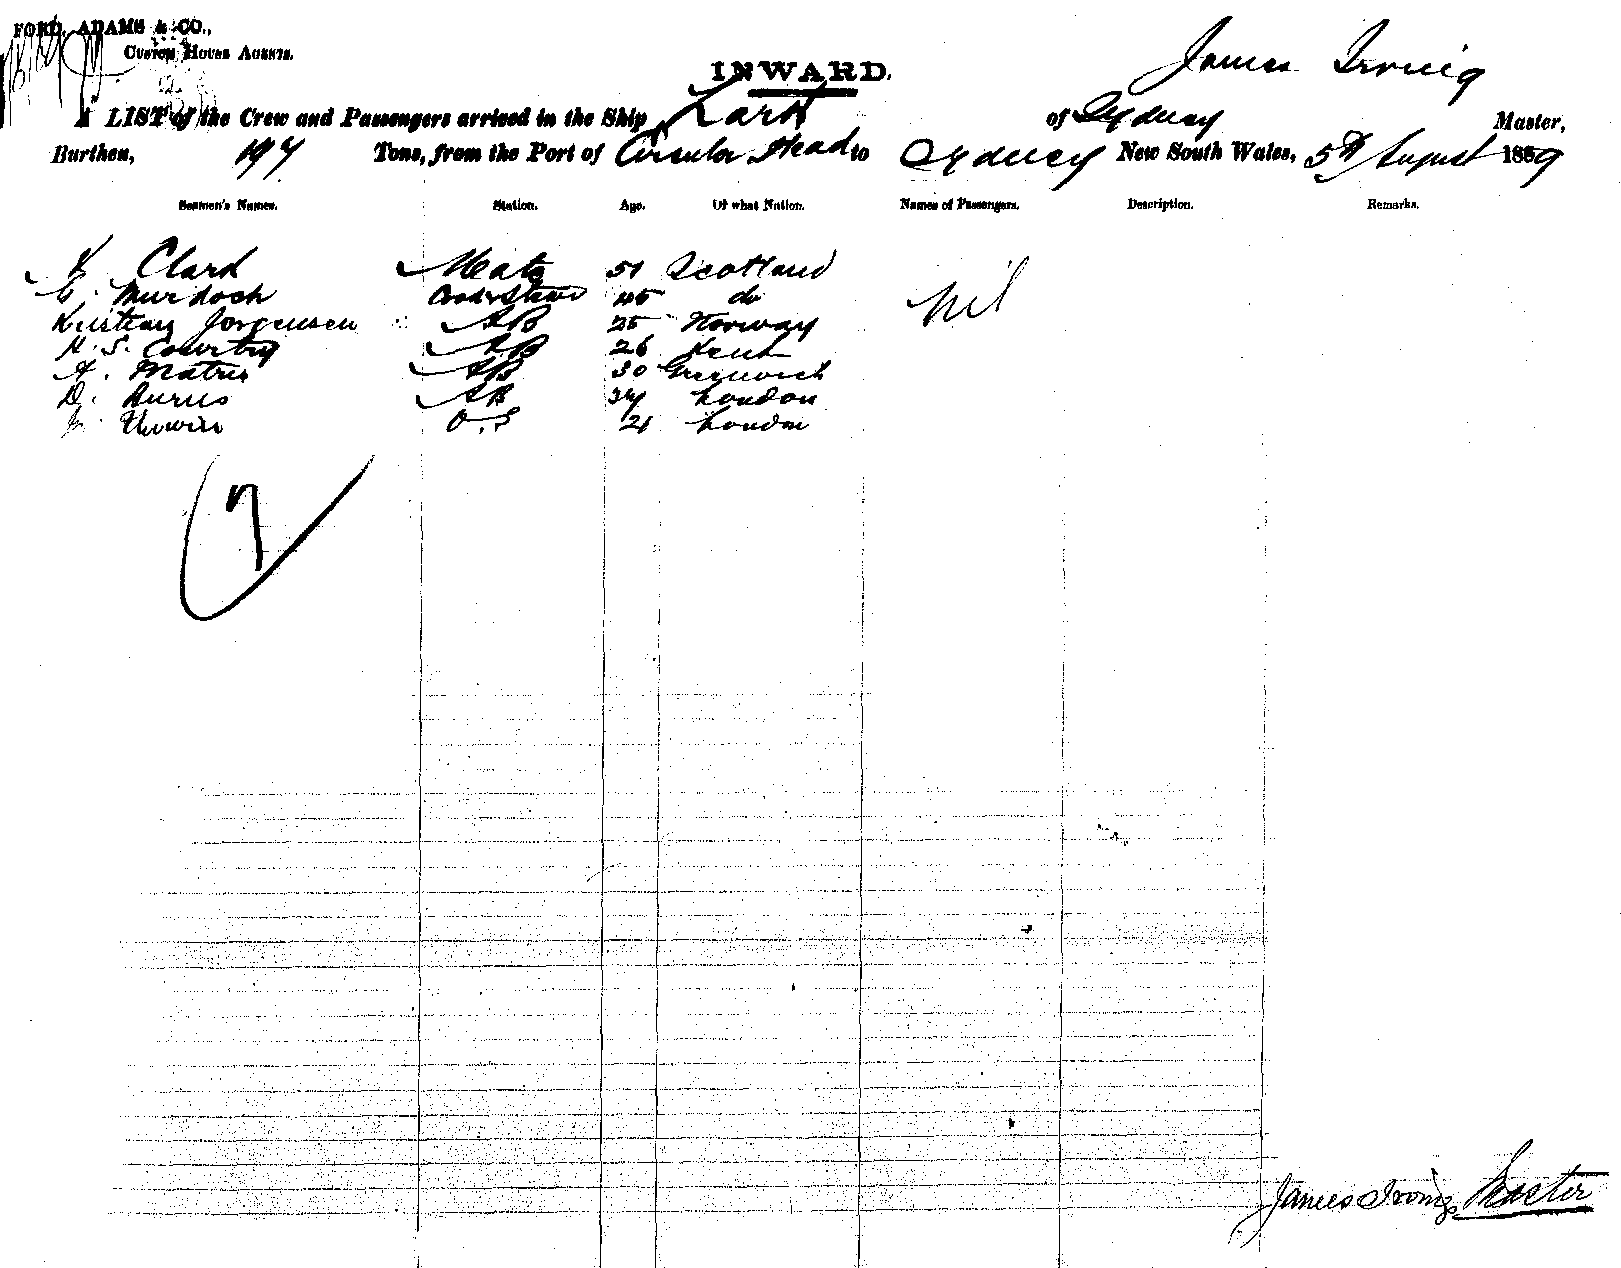 FORD, ADAMS & CO.,
CUSTOM HOUSE AGENTS.
INWARD.
James Irving
A LIST of the Crew and Passengers arrived in the Ship Lark of Sydney Master,
Burthen, 197 Tons, from the Port of Circular Head to Sydney New South Wales, 5th August 1889
Seamen's Names. Station. Age. Of what Nation. Names of Passengers. Description. Remarks.
Clark Mate 51 Scotland nil
C. Murdoch Cook & Steward 45 do
Jorgensen AB 25 Norway
H. S. AB 26 Kent
A. AB 30 Greenwich
D. Burns AB 34 London
O.S 21 London
7
James Irving Master